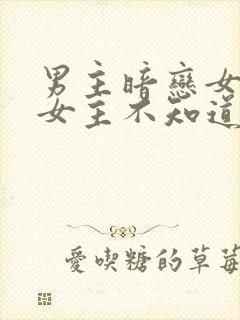 男主暗戀女
女主不知道
愛喫糖的草莓